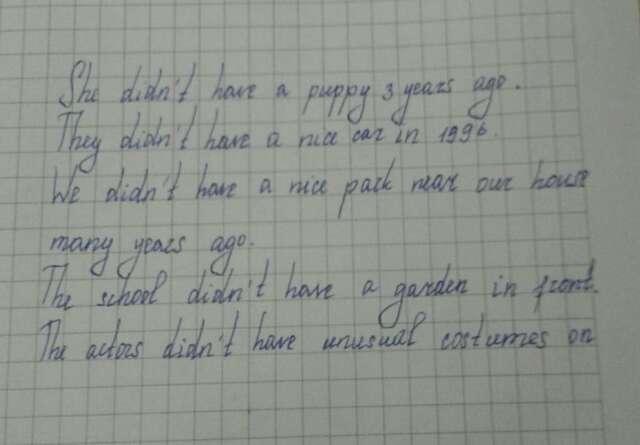 She didn't have a puppy 3 years ago.
They didn't have a nice car in 1996.
We didn't have a nice park near our house
many years ago.
The school didn't have a garden in front.
The actors didn't have unusual costumes on